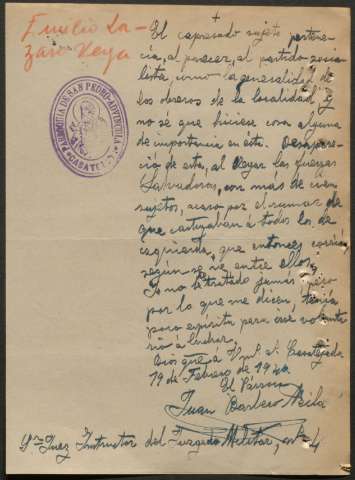 Emilio La-
zaro Veya
PARROQUIA DE SAN PEDRO ADVINCULA
CASATEJADA
El expresado sujeto pertene-
cía, al parecer, al partido socia-
lista, como la generalidad de
los obreros de la localidad, y
no sé que hiciese cosa alguna
de importancia en ésta. Desapare-
ció de esta, al llegar las fuerzas
Salvadoras, con más de cien
sujetos, acaso por el rumor de
que castigaban á todos los de
izquierda, que entonces corrió
según se ve entre ellos.
Yo no le he tratado jamás, pero
por lo que me dicen, tenía
poco espíritu para irse volunta-
rio á luchar.
Dios gue á V. m. a. Casatejada
19 de Febrero de 1940.
El Párroco
Juan Barbero
Sr. Juez Instructor del Juzgado Militar, nº 4